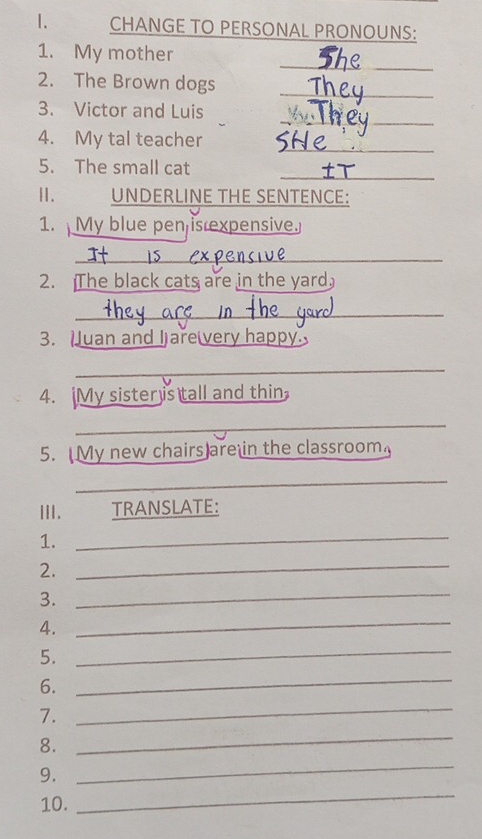 I. CHANGE TO PERSONAL PRONOUNS:
1. My mother She
2. The Brown dogs They
3. Victor and Luis They
4. My tal teacher SHe
5. The small cat IT
II. UNDERLINE THE SENTENCE:
1. My blue pen is expensive.
It is expensive
2. The black cats are in the yard.
they are in the yard
3. Juan and I are very happy.
4. My sister is tall and thin.
5. My new chairs are in the classroom.
III. TRANSLATE:
1.
2.
3.
4.
5.
6.
7.
8.
9.
10.